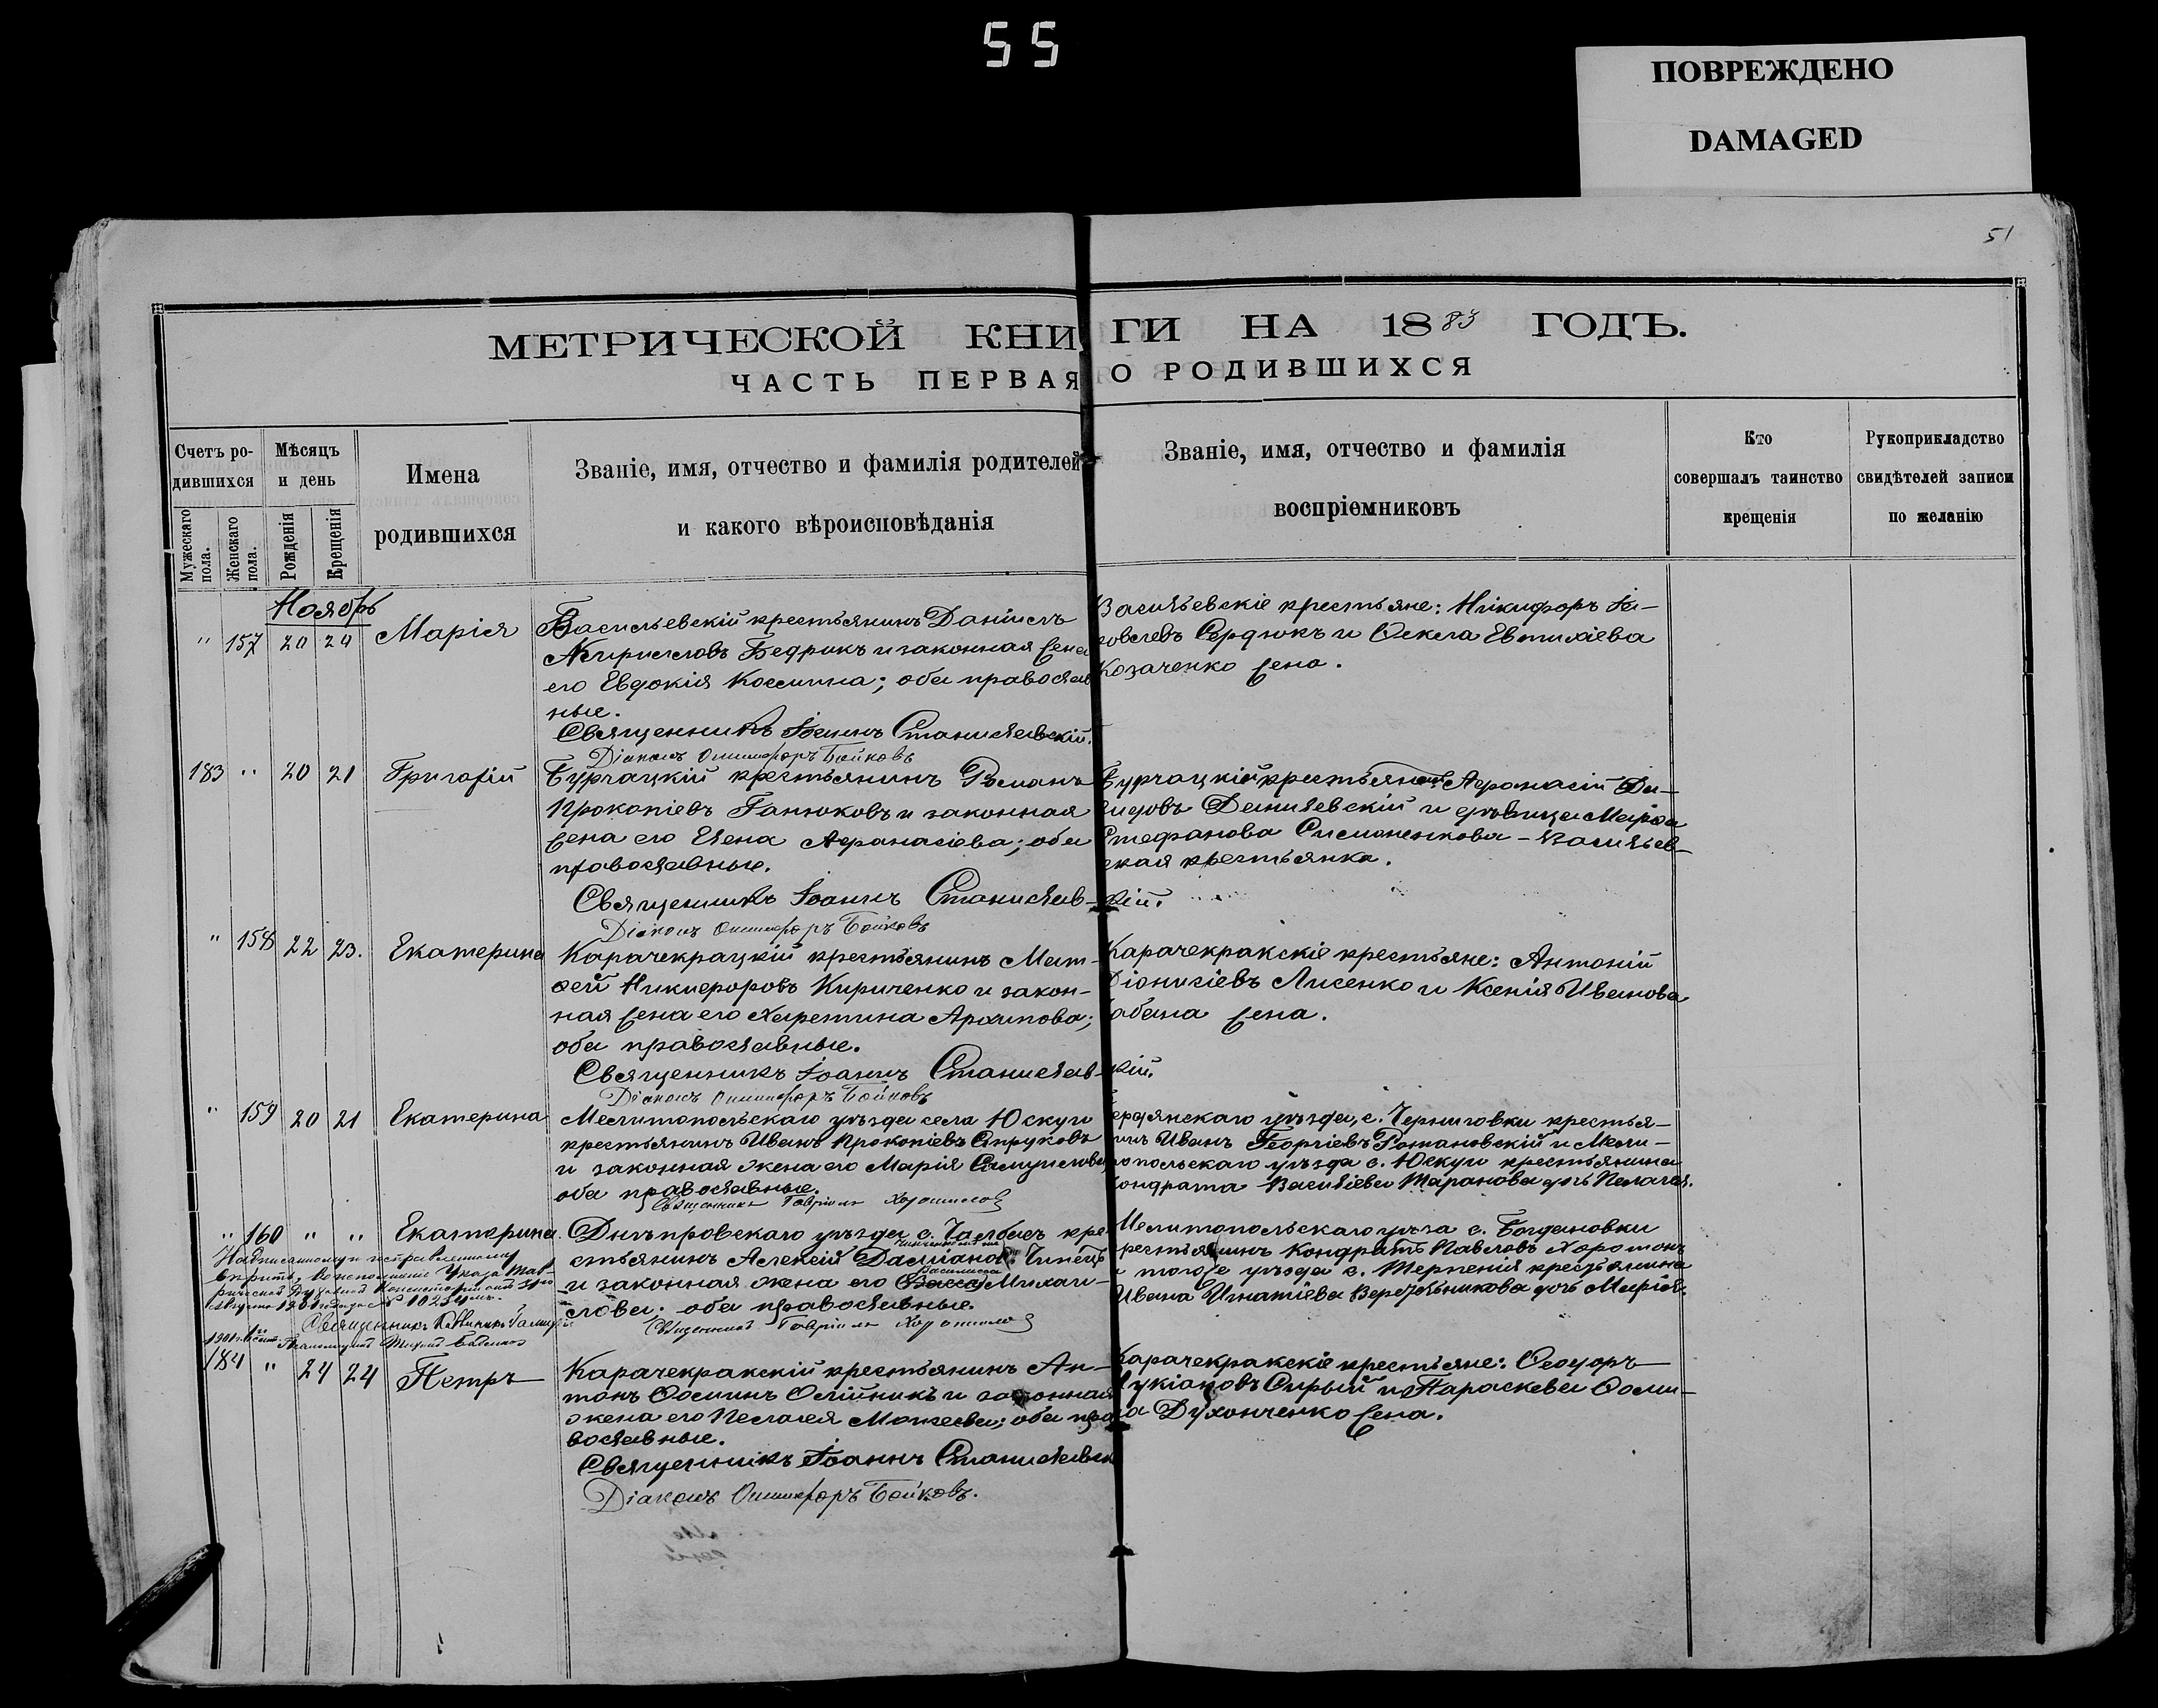 55
ПОВРЕЖДЕНО
DAMAGED
51
МЕТРИЧЕСКОЙ КНИГИ НА 1883 ГОДЪ.
ЧАСТЬ ПЕРВАЯ О РОДИВШИХСЯ
Счетъ ро-
дившихся
Мужескаго пола.
Женскаго пола.
Мѣсяцъ
и день
Рожденія
Крещенія
Имена
родившихся
Званіе, имя, отчество и фамилія родителей
и какого вѣроисповѣданія
Званіе, имя, отчество и фамилія
воспріемниковъ
Кто
совершалъ таинство
крещенія
Рукоприкладство
свидѣтелей записи
по желанію
Ноябрь
" 157 20 24 Марія
Васильевскій крестьянинъ Даніилъ
Кирилловъ Бедрикъ и законная жена
его Евдокія Космина; оба православ
ные.
Священникъ Іоаннъ Станиславскій.
Діаконъ Онисифоръ Бойковъ
Васильевскіе крестьяне: Никифоръ Іа-
ковлевъ Сердюкъ и Ѳекла Евтихіева
Козаченко жена.
183 " 20 21 Григорій
Бурчацкій крестьянинъ Романъ
Прокопіевъ Ганюковъ и законная
жена его Елена Афанасіева; оба
православные.
Священникъ Іоаннъ Станиславскій.
Діаконъ Онисифоръ Бойковъ
Бурчацкій крестьянинъ Афанасій
Данилевскій и дѣвица Марѳа
Стефанова Симоненкова - Васильев-
ская крестьянка.
" 158 22 23. Екатерина
Карачекрацкій крестьянинъ Мат-
ѳей Никифоровъ Кириченко и закон-
ная жена его Харитина Архипова;
оба православные.
Священникъ Іоаннъ Станиславскій.
Діаконъ Онисифоръ Бойковъ
Карачекракскіе крестьяне: Антоній
Діонисіевъ Лисенко и Ксенія Иванова
жена.
" 159 20 21 Екатерина
Мелитопольскаго уѣзда села Юскуи
крестьянинъ Иванъ Прокопіевъ Струковъ
и законная жена его Марія Самуилова,
оба православные.
Священникъ Гавріилъ
Бердянскаго уѣзда, с. Черниговки крестья-
нинъ Иванъ Георгіевъ Романовскій и Мели-
топольскаго уѣзда с. Юскуи крестьянина
Кондрата Васильева Таранова дочь Пелагея.
" 160 " " Екатерина.
Днѣпровскаго уѣзда с. Чалбасъ кре-
стьянинъ Алексій Даміановъ
Василисса
и законная жена его Васса Михаи-
лова; оба православные.
Священникъ Гавріилъ
Мелитопольскаго уѣзда с. Богдановки
крестьянинъ Кондратъ Павловъ
и того же уѣзда с. Терпенія крестьянина
Ивана Игнатіева дочь Марія.
Надписанному и исправленному
вѣрить, во исполненіе Указа Тав-
рической Духовной Консисторіи отъ
1901 года № 10254
Священникъ
184 " 24 24 Петръ
Карачекракскій крестьянинъ Ан-
тонъ Ѳоминъ Олійникъ и законная
жена его Пелагея Моисеева; оба пра
вославные.
Священникъ Іоаннъ Станиславск
Діаконъ Онисифоръ Бойковъ.
Карачекракскіе крестьяне: Ѳеодоръ
Лукіановъ Сирый и Параскева Ѳоми-
на Духонченко жена.